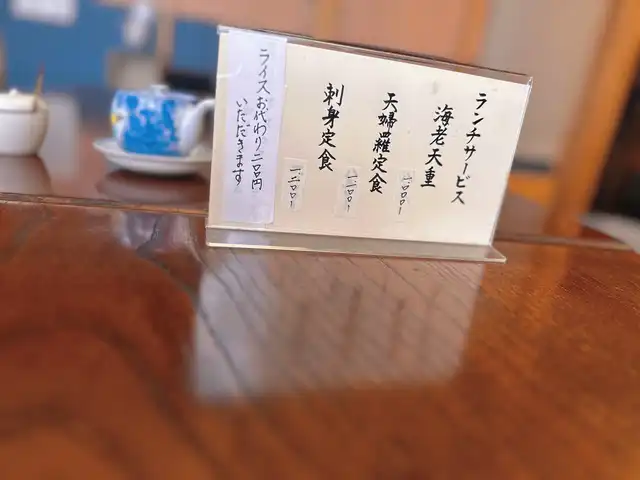 ランチサービス
海老天重
天婦羅定食
一二〇〇
刺身定食
一二〇〇
ライスお代わり二〇〇円
いただきます